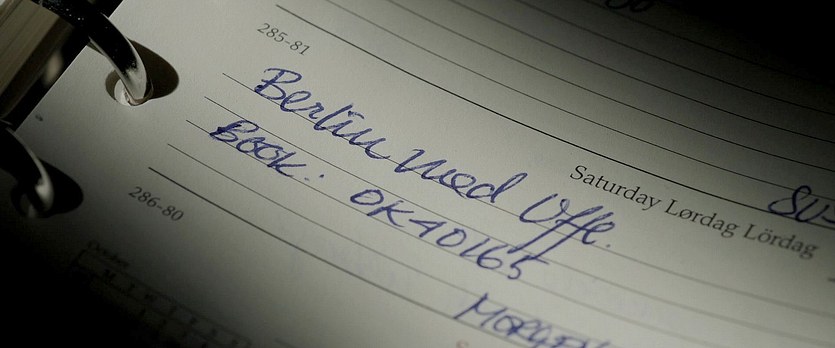 285-81
Berlin med Uffe.
Book: OK40165
Saturday Lørdag Lördag
286-80
October